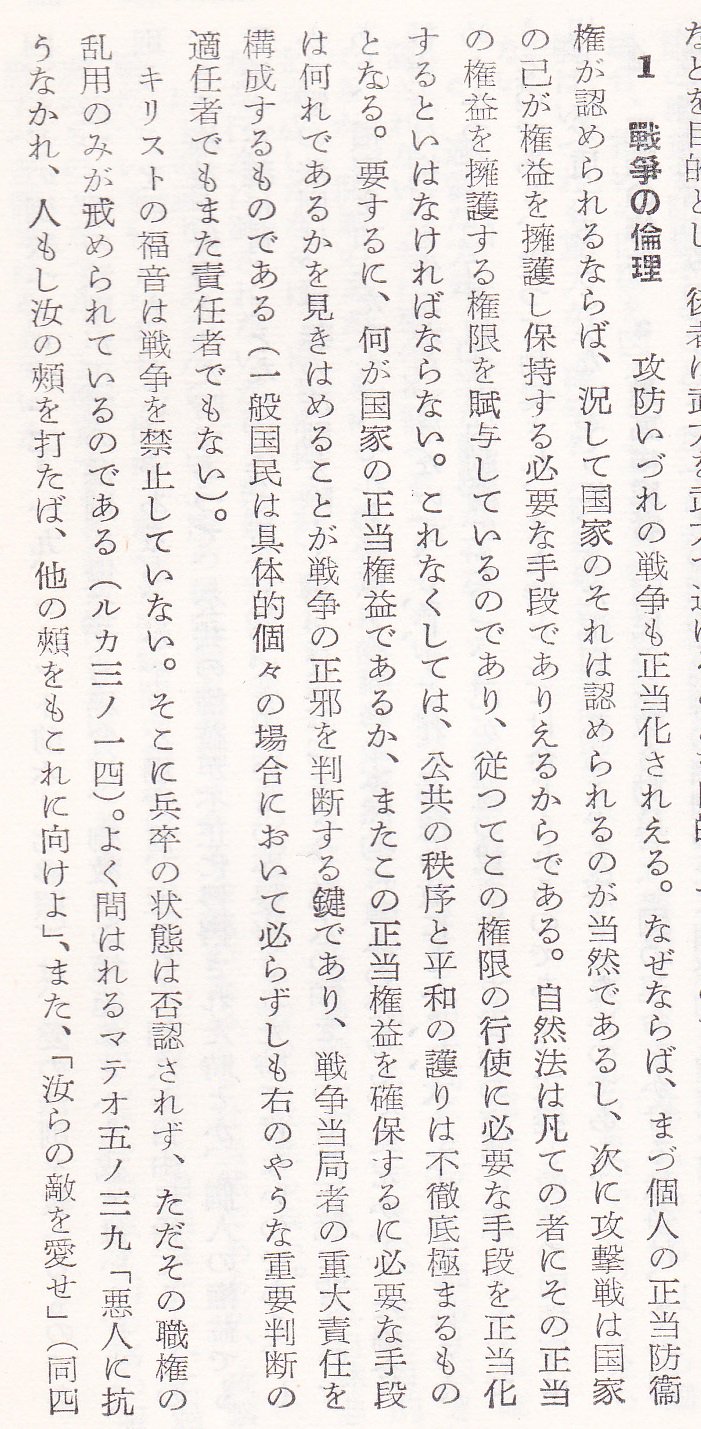 1 戰爭の倫理 攻防いづれの戦争も正当化されえる。なぜならば、まづ個人の正当防衞
権が認められるならば、況して国家のそれは認められるのが当然であるし、次に攻撃戦は国家
の己が権益を擁護し保持する必要な手段でありえるからである。自然法は凡ての者にその正当
の権益を擁護する権限を賦与しているのであり、従つてこの権限の行使に必要な手段を正当化
するといはなければならない。これなくしては、公共の秩序と平和の護りは不徹底極まるもの
となる。要するに、何が国家の正当権益であるか、またこの正当権益を確保するに必要な手段
は何れであるかを見きはめることが戦争の正邪を判断する鍵であり、戦争当局者の重大責任を
構成するものである（一般国民は具体的個々の場合において必らずしも右のやうな重要判断の
適任者でもまた責任者でもない）。
キリストの福音は戦争を禁止していない。そこに兵卒の状態は否認されず、ただその職権の
乱用のみが戒められているのである（ルカ三ノ一四）。よく問はれるマテオ五ノ三九「悪人に抗
うなかれ、人もし汝の頰を打たば、他の頰をもこれに向けよ」、また、「汝らの敵を愛せ」（同四